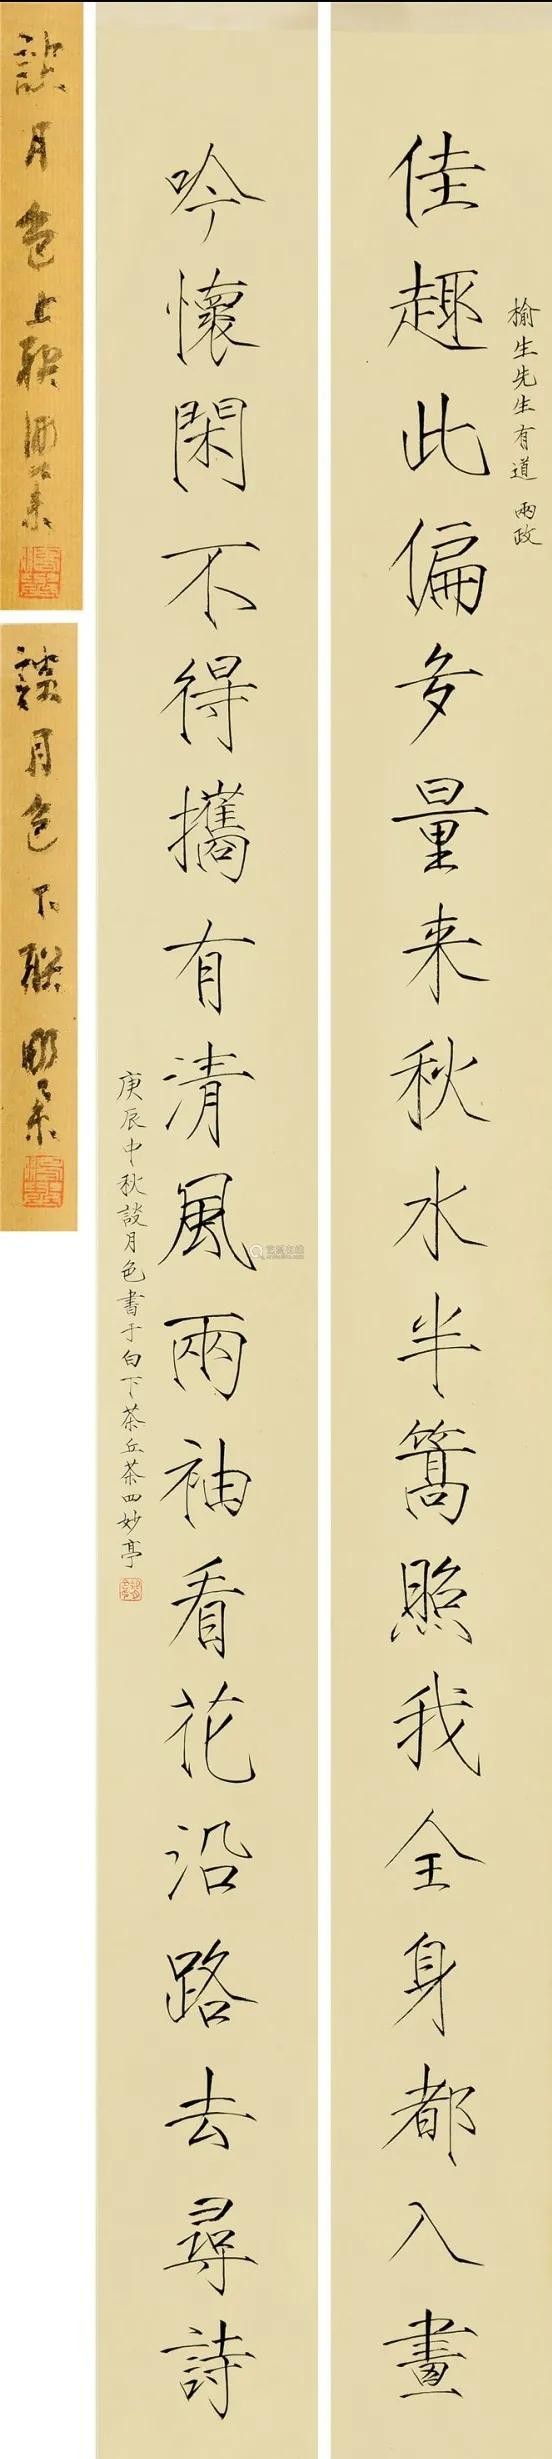 佳趣此偏多量来秋水半篙照我全身都入畫
榆生先生有道 兩政
吟懷閑不得攜有清風兩袖看花沿路去尋詩
庚辰中秋談月色書于白下茶丘茶四妙亭
談月色上联
談月色下联